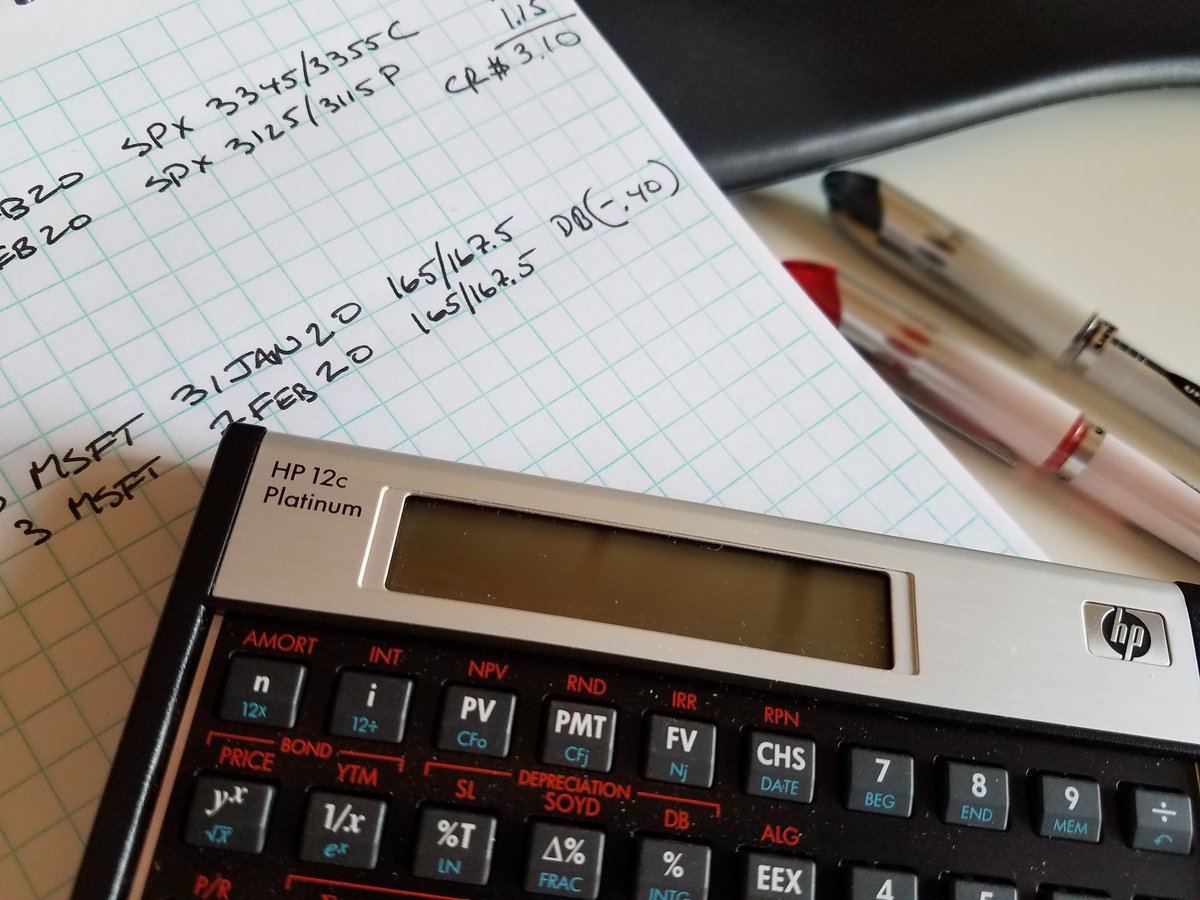 1.15
SPX 3345/3355C CR$ 3.10
SPX 3125/3115P
EB20
31 JAN 20 165/167.5 DB(-.40)
MSFT
3 MSFT 7 FEB 20 165/167.5
HP 12c
Platinum
hp
AMORT INT NPV RND IRR RPN
n i PV PMT FV CHS 7 8 9 ÷
12x 12÷ CFo CFj Nj DATE BEG END MEM
BOND DEPRECIATION
PRICE YTM SL SOYD DB ALG
yx 1/x %T Δ% % EEX 4
√x ex LN FRAC INTG
P/R